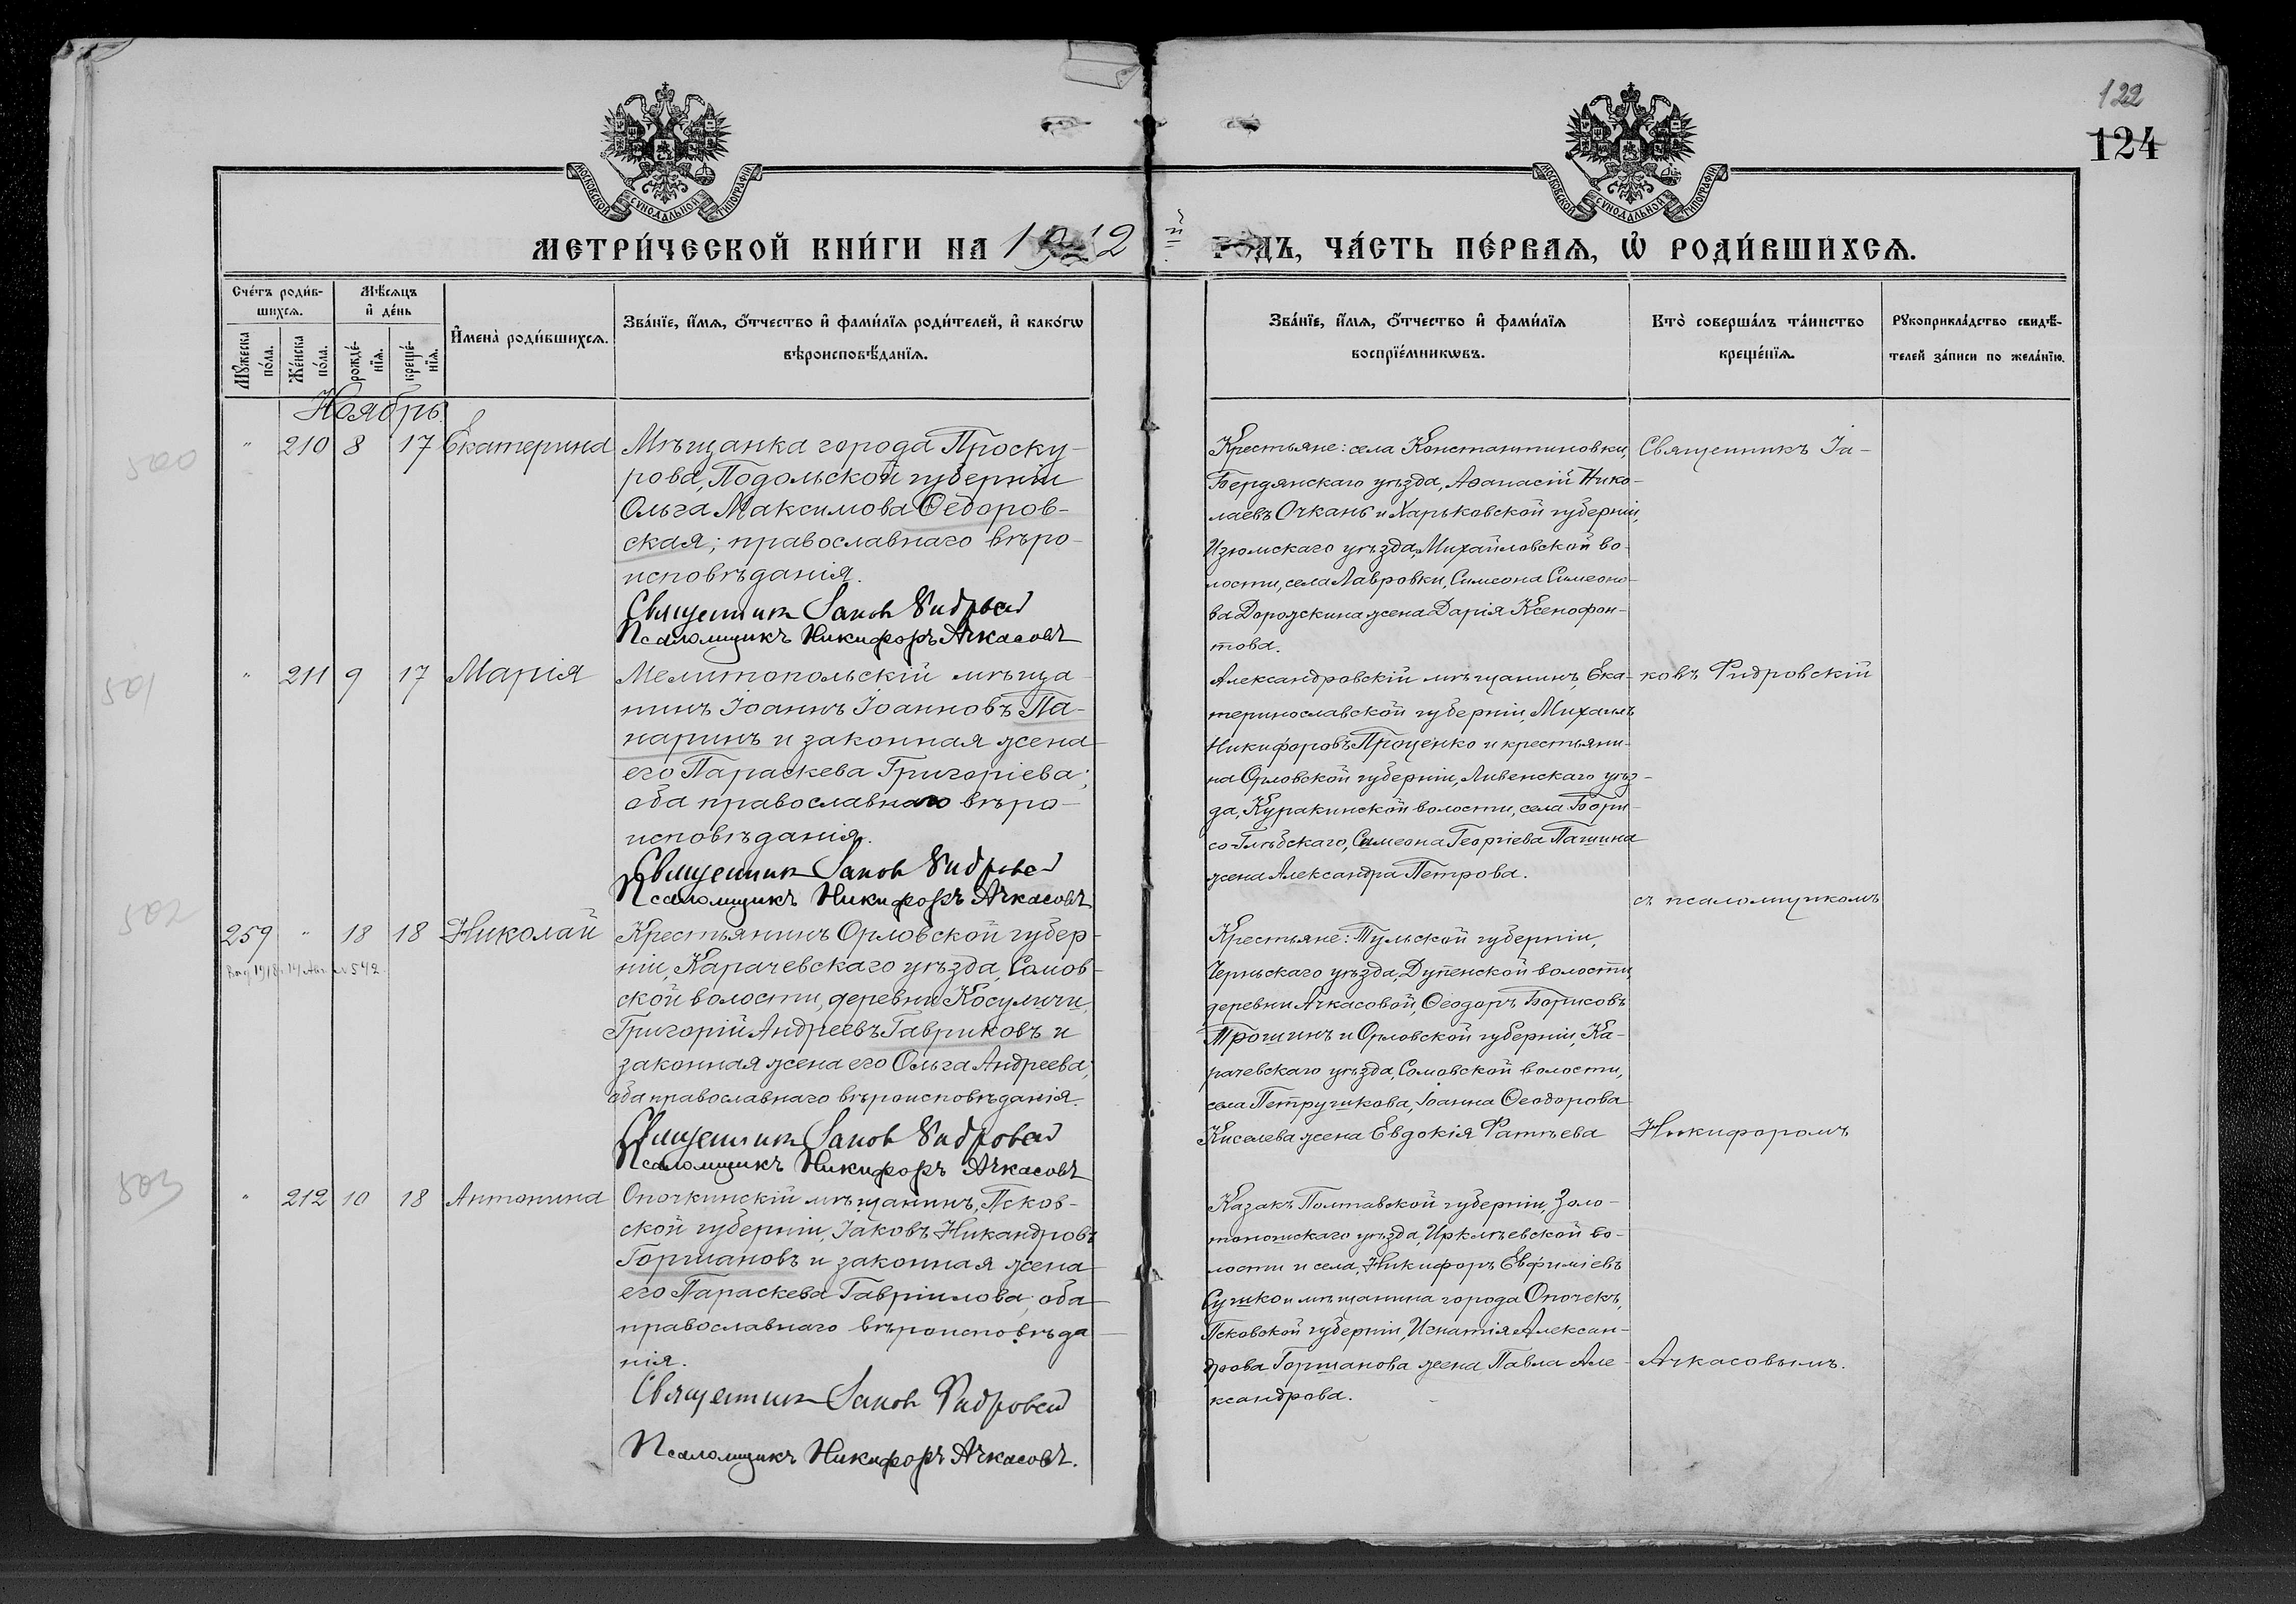 122
124
МОСКОВСКОЙ СѴНОДАЛЬНОЙ ТИПОГРАФІИ
МОСКОВСКОЙ СѴНОДАЛЬНОЙ ТИПОГРАФІИ
МЕТРИ́ЧЕСКОЙ КНИ́ГИ НА 1912 й ГОДЪ, ЧА́СТЬ ПЕ́РВАѦ, Ѡ҆ РОДИ́ВШИХСѦ.
Сче́тъ роди́в-
шихсѧ.
Мѣ́сѧцъ
и҆ де́нь
Мꙋ́жеска
по́ла.
Же́нска
по́ла.
рожде́-
нїѧ.
креще́-
нїѧ.
И҆мена̀ роди́вшихсѧ.
Зва́нїе, и҆́мѧ, ѻ҆́тчество и҆ фами́лїѧ роди́телей, и҆ како́гѡ
вѣроисповѣ́данїѧ.
Зва́нїе, и҆́мѧ, ѻ҆́тчество и҆ фами́лїѧ
воспрїе́мникѡвъ.
Кто̀ соверша́лъ та́инство
креще́нїѧ.
Рꙋкоприкла́дство свидѣ́-
телей за́писи по жела́нїю.
Ноябрь.
500
" 210 8 17 Екатерина
Мѣщанка города Проску-
рова, Подольской губерніи
Ольга Максимова Ѳедоров-
ская; православнаго вѣро-
исповѣданія.
Священникъ Іаковъ Фидровскій
Псаломщикъ Никифоръ Ачкасовъ
Крестьяне: села Константиновки,
Бердянскаго уѣзда, Аѳанасій Нико-
лаевъ Очкань и Харьковской губерніи,
Изюмскаго уѣзда, Михайловской во-
лости, села Лавровки, Симеона Симеоно-
ва Дорожкина жена Дарія Ксенофон-
това.
Священникъ Іа-
501
" 211 9 17 Марія
Мелитопольскій мѣща-
нинъ Іоаннъ Іоанновъ Па-
наринъ и законная жена
его Параскева Григоріева;
оба православнаго вѣро-
исповѣданія.
Священникъ Іаковъ Фидровскій
Псаломщикъ Никифоръ Ачкасовъ
Александровскій мѣщанинъ, Ека-
теринославской губерніи, Михаилъ
Никифоровъ Проценко и крестьяни-
на Орловской губерніи, Ливенскаго уѣз-
да, Куракинской волости, села Бори-
со-Глѣбскаго, Симеона Георгіева Пашина
жена Александра Петрова.
ковъ Фидровскій
съ псаломщикомъ
502
259 " 18 18 Николай
14 № 542.
Крестьянинъ Орловской губер-
ніи, Карачевскаго уѣзда, Сомов-
ской волости, деревни Косуличи,
Григорій Андреевъ Гавриковъ и
законная жена его Ольга Андреева;
оба православнаго вѣроисповѣданія.
Священникъ Іаковъ Фидровскій
Псаломщикъ Никифоръ Ачкасовъ
Крестьяне: Тульской губерніи,
Чернскаго уѣзда, Дупенской волости,
деревни Ачкасовой, Ѳеодоръ Борисовъ
Трошинъ и Орловской губерніи, Ка-
рачевскаго уѣзда, Сомовской волости,
села Петрушкова, Іоанна Ѳеодорова
Киселева жена Евдокія Фатѣева
Никифоромъ
503
" 212 10 18 Антонина
Опочкинскій мѣщанинъ, Псков-
ской губерніи, Іаковъ Никандровъ
Горшановъ и законная жена
его Параскева Гавріилова; оба
православнаго вѣроисповѣда-
нія.
Священникъ Іаковъ Фидровскій
Псаломщикъ Никифоръ Ачкасовъ.
Казакъ Полтавской губерніи, Золо-
тоношскаго уѣзда, Ирклѣевской во-
лости и села, Никифоръ Евфиміевъ
Сушко и мѣщанина города Опочекъ,
Псковской губерніи, Игнатія Алексан-
дрова Горшанова жена Павла Але-
ксандрова.
Ачкасовымъ.